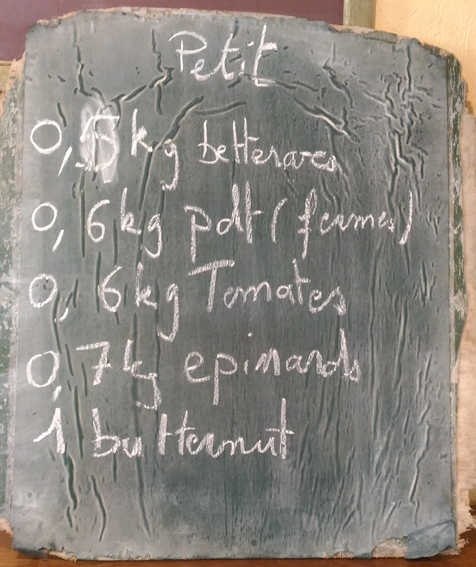 Petit
0,5 kg betteraves
0,6 kg pdt (fermes)
0,6 kg Tomates
0,7 kg epinards
1 butternut